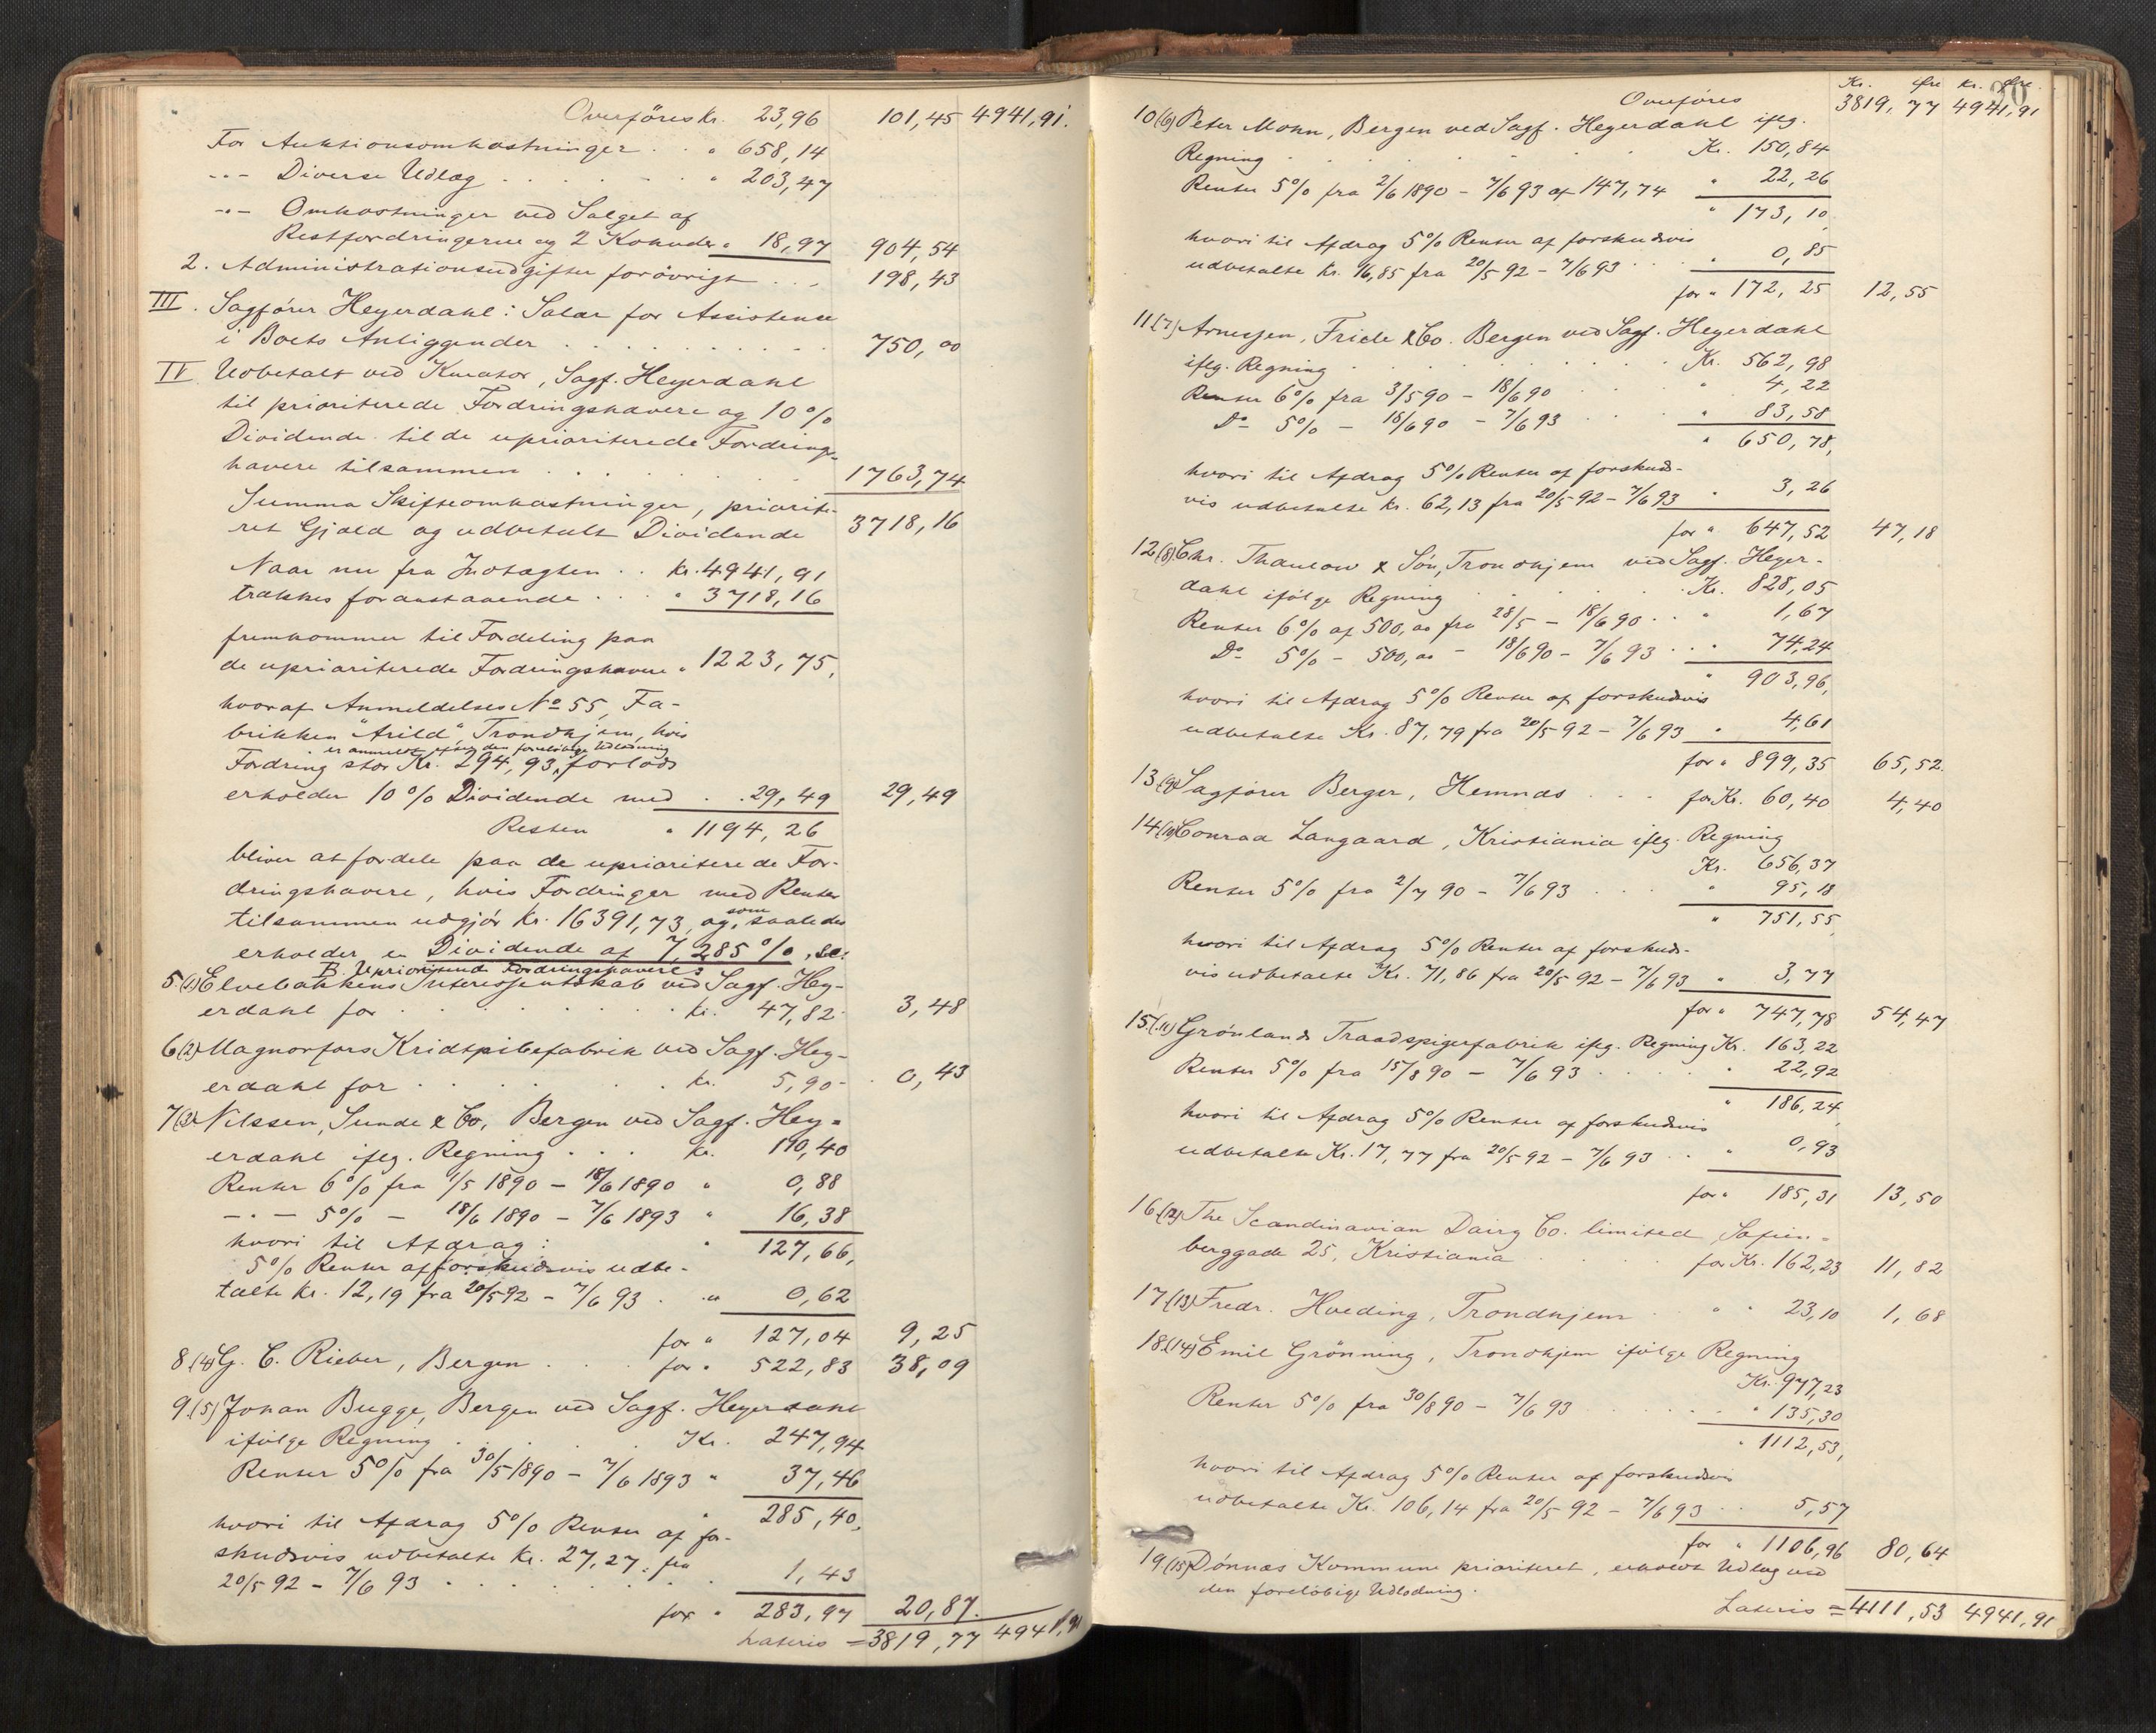 Overføres kr. 23,96 101,45 4941,91.
For Auktionsomkostninger . . " 658,14
-"- Diverse Udlæg . . . . . " 203,47
-"- Omkostninger ved Salget af
Restfordringerne og 2 Kohuder " 18,97 904,54
2. Administrationsudgifter forøvrigt . . . 198,43
III. Sagfører Heyerdahl: Salær for Assistense
i Boets Anliggender . . . . . . . . . 750,00
IV. Udbetalt ved Kurator, Sagf. Heyerdahl
til prioriterede Fordringshavere og 10%
Dividende til de uprioriterede Fordrings-
havere tilsammen . . . . . . . 1763,74
Summa Skifteomkostninger, priorite-
ret Gjæld og udbetalt Dividende 3718,16
Naar nu fra Indtægten . . kr. 4941,91
trækkes foranstaaende . . . " 3718,16
fremkommer til Fordeling paa
de uprioriterede Fordringshavere " 1223,75,
hvoraf Anmeldelses No 55, Fa-
brikken "Arild", Trondhjem, hvis
er anmeldt efter den foreløbige Udlodning
Fordring stor Kr. 294,93, forlods
erholder 10% Dividende med . . 29,49 29,49
Resten " 1194,26
bliver at fordele paa de uprioriterede For-
dringshavere, hvis Fordringer med Renter
tilsammen udgjør kr. 16391,73, og som saaledes
erholder en Dividende af 7,285%, sc:
B. Uprioriterede Fordringshavere:
5.(1) Elvebakkens Interessentskab ved Sagf. Hey-
erdahl for . . . . . . . . kr. 47,82 3,48
6(2) Magnorfors Kridtpibefabrik ved Sagf. Hey-
erdahl for . . . . . . kr. 5,90 - 0,43
7(3) Nilssen, Sunde & Co, Bergen ved Sagf. Hey-
erdahl iflg. Regning . . . kr. 110,40
Renter 6% fra 1/5 1890 - 18/6 1890 " 0,88
-"- 5% - 18/6 1890 - 7/6 1893 " 16,38
hvori til Afdrag: " 127,66,
5% Renter af forskudsvis udbe-
talte kr. 12,19 fra 20/5 92 - 7/6 93 . " 0,62
for " 127,04 9,25
8.(4) G. C. Rieber, Bergen . . . for " 522,83 38,09
9.(5) Johan Bugge, Bergen ved Sagf. Heyerdahl
ifølge Regning . . . . . Kr. 247,94
Renter 5% fra 30/5 1890 - 7/6 1893 " 37,46
" 285,40,
hvori til Afdrag 5% Renter af for-
skudsvis udbetalte kr. 27,27 fra
20/5 92 - 7/6 93 . . . . . . . 1,43
for " 283,97 20,87.
Lateris = 3819,77 4941,91
Kr. Øre Kr. Øre
Overføres 3819,77 4941,91
10(6) Peter Mohn, Bergen ved Sagf. Heyerdahl iflg.
Regning . . . . . . Kr. 150,84
Renter 5% fra 2/6 1890 - 7/6 93 af 147,74 " 22,26
" 173,10,
hvori til Afdrag 5% Renter af forskudsvis
udbetalte Kr. 16,85 fra 20/5 92 - 7/6 93 . . . " 0,85
for " 172,25 12,55
11(7) Arnessen, Friele & Co. Bergen ved Sagf. Heyerdahl
iflg. Regning . . . . . . . Kr. 562,98
Renter 6% fra 3/5 90 - 18/6 90 . . . " 4,22
Do 5% - 18/6 90 - 7/6 93 . . . " 83,58
" 650,78,
hvori til Afdrag 5% Renter af forskuds-
vis udbetalte Kr. 62,13 fra 20/5 92 - 7/6 93 " 3,26
for " 647,52 47,18
12(8) Chr. Thaulow & Søn, Trondhjem ved Sagf. Heyer-
dahl ifølge Regning . . . . . Kr. 828,05
Renter 6% af 500,00 fra 28/5 - 18/6 90 . . " 1,67
Do 5% - 500,00 - 18/6 90 - 7/6 93 . . . " 74,24
" 903,96,
hvori til Afdrag 5% Renter af forskudsvis
udbetalte Kr. 87,79 fra 20/5 92 - 7/6 93 " 4,61
for " 899,35 65,52.
13(9) Sagfører Berger, Hemnæs . . . for Kr. 60,40 4,40
14(10) Conrad Langaard, Kristiania iflg. Regning
Kr. 656,37
Renter 5% fra 2/7 90 - 7/6 93 . . . " 95,18
" 751,55
hvori til Afdrag 5% Renter af forskuds-
vis udbetalte Kr. 71,86 fra 20/5 92 - 7/6 93 " 3,77
for " 747,78 54,47
15.(11) Grønlands Traadspigerfabrik iflg. Regning Kr. 163,22
Renter 5% fra 15/8 90 - 7/6 93 . . . . . " 22,92
" 186,24,
hvori til Afdrag 5% Renter af forskudsvis
udbetalte Kr. 17,77 fra 20/5 92 - 7/6 93 . . " 0,93
for " 185,31 13,50
16(12) The Scandinavian Dairy Co. limited, Sofien-
berggade 25, Kristiania . . . . for Kr. 162,23 11,82
17(13) Fredr. Hveding, Trondhjem . " " 23,10 1,68
18.(14) Emil Grønning, Trondhjem ifølge Regning
Kr. 977,23
Renter 5% fra 30/8 90 - 7/6 93 . . . . . " 135,30
" 1112,53,
hvori til Afdrag 5% Renter af forskudsvis
udbetalte Kr. 106,14 fra 20/5 92 - 7/6 93 . . 5,57
for " 1106,96 80,64
19(15) Dønnæs Kommune prioriteret, erholdt Udlæg ved
den foreløbige Udlodning.
Lateris = 4111,53 4941,91